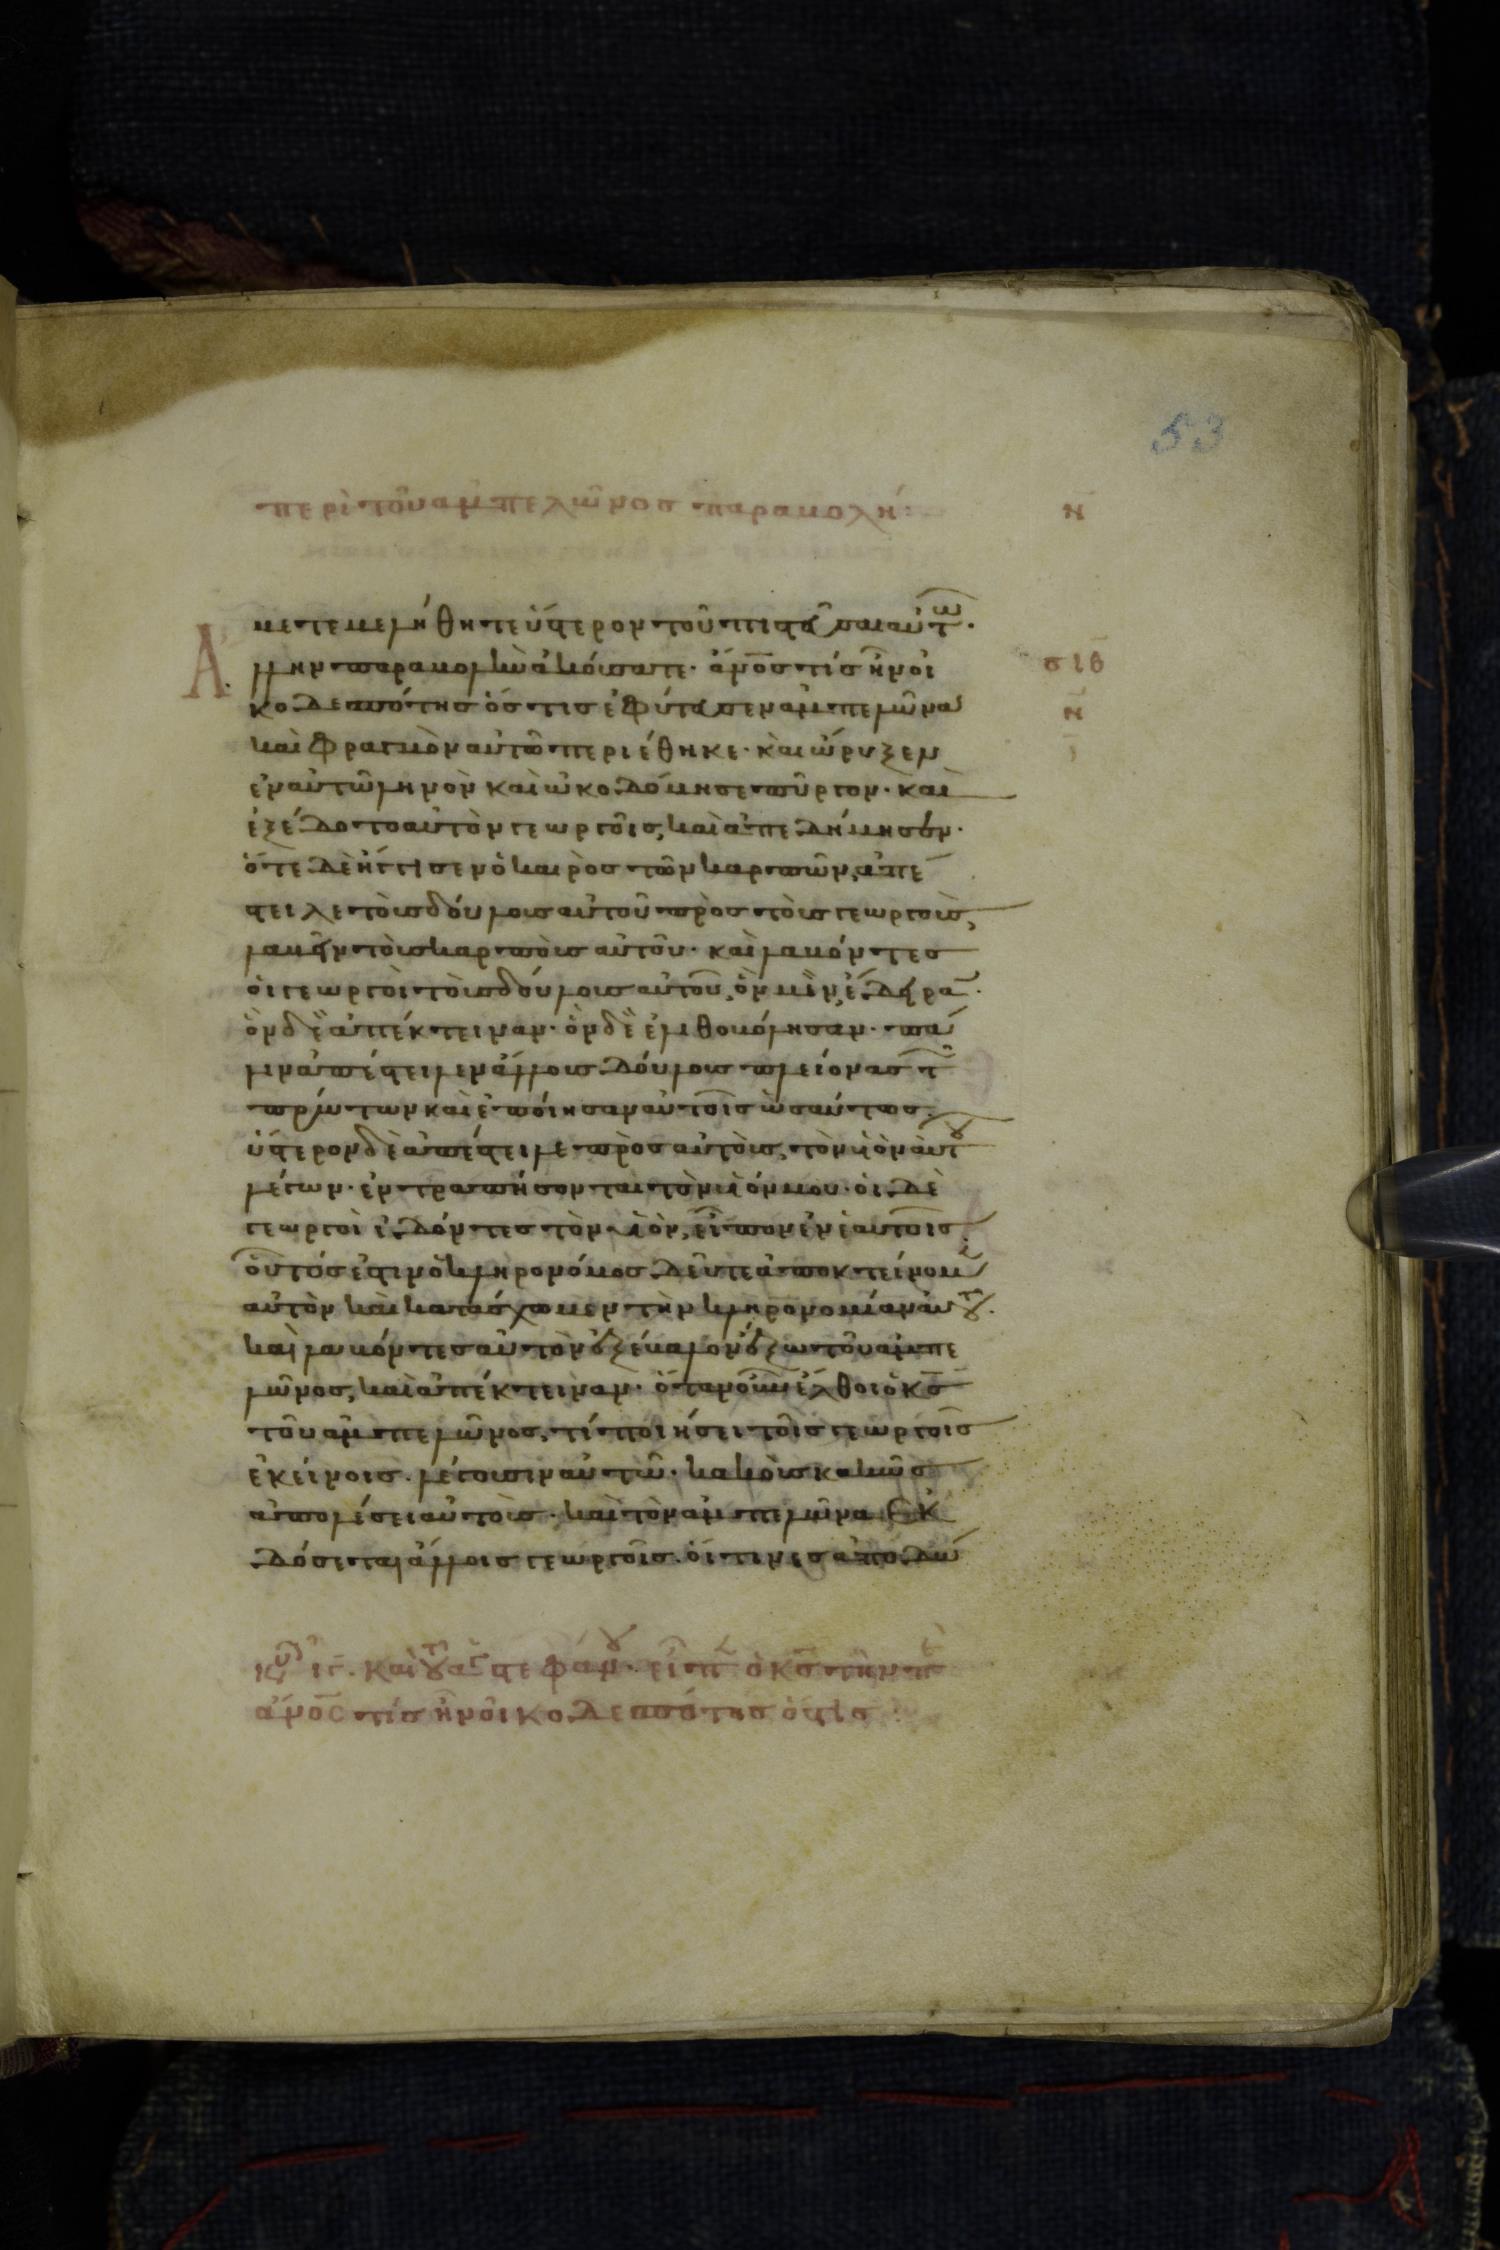 53
περὶ τοῦ ἀμπελῶνος παραβολή:
ν̄
μετεμελήθητε ὕστερον τοῦ πιστεῦσαι αὐτῶ.
Ἄλλην παραβολὴν ἀκούσατε. ἄνο̅ς τίς ἦν οἰ
σιθ
κοδεσπότης ὅστις ἐφύτευσεν ἀμπελῶνα
ν̄
καὶ φραγμὸν αὐτῶ περιέθηκε. καὶ ὤρυξεν
ἐν αὐτῶ ληνὸν καὶ ὠκοδόμησε πύργον. καὶ
ἐξέδοτο αὐτὸν γεωργοῖς, καὶ ἀπεδήμησεν.
ὅτε δὲ ἤγγισεν ὁ καιρὸς τῶν καρπῶν, ἀπέ
στειλε τοὺς δούλους αὐτοῦ πρὸς τοὺς γεωργοὺς,
λαβεῖν τοὺς καρποὺς αὐτοῦ. καὶ λαβόντες
ὁι γεωργοὶ τοὺς δούλους αὐτοῦ, ὃν μὲν ἔδειρα̅.
ὃν δὲ ἀπέκτειναν. ὃν δὲ ἐλιθοβόλησαν. πά
λιν ἀπέστειλεν ἄλλους δούλους πλείονας τῶ̅
πρώτων καὶ ἐποίησαν αὐτοῖς ὡσαύτως.
ὕστερον δὲ ἀπέστειλε πρὸς αὐτοὺς, τὸν υἱὸν αὐτοῦ
λέγων. ἐντραπήσονται τὸν υἱόν μου. οἱ δὲ
γεωργοὶ ἰδόντες τὸν υἱὸν, εἶπον ἐν ἑαυτοῖς.
οὗτός ἐστιν ὁ κληρονόμος. δεῦτε ἀποκτείνομεν
αὐτὸν καὶ κατάσχωμεν τὴν κληρονομίαν αὐτοῦ.
καὶ λαβόντες αὐτὸν ἐξέβαλον ἔξω τοῦ ἀμπε
λῶνος, καὶ ἀπέκτειναν. ὅταν οὖν ἔλθοι ὁ κ̅ς
τοῦ ἀμπελῶνος, τί ποιήσει τοῖς γεωργοῖς
ἐκείνοις. λέγουσιν αὐτῶ. κακοὺς κακῶς
ἀπολέσει αὐτοὺς. καὶ τὸν ἀμπελῶνα ἐκ
δόσεται ἄλλοις γεωργοῖς. οἵτινες ἀποδώ
εἶπ ὁ κ̅ς τὴν π
ἄνο̅ς τίς ἦν οἰκοδεσπότης ὅστις